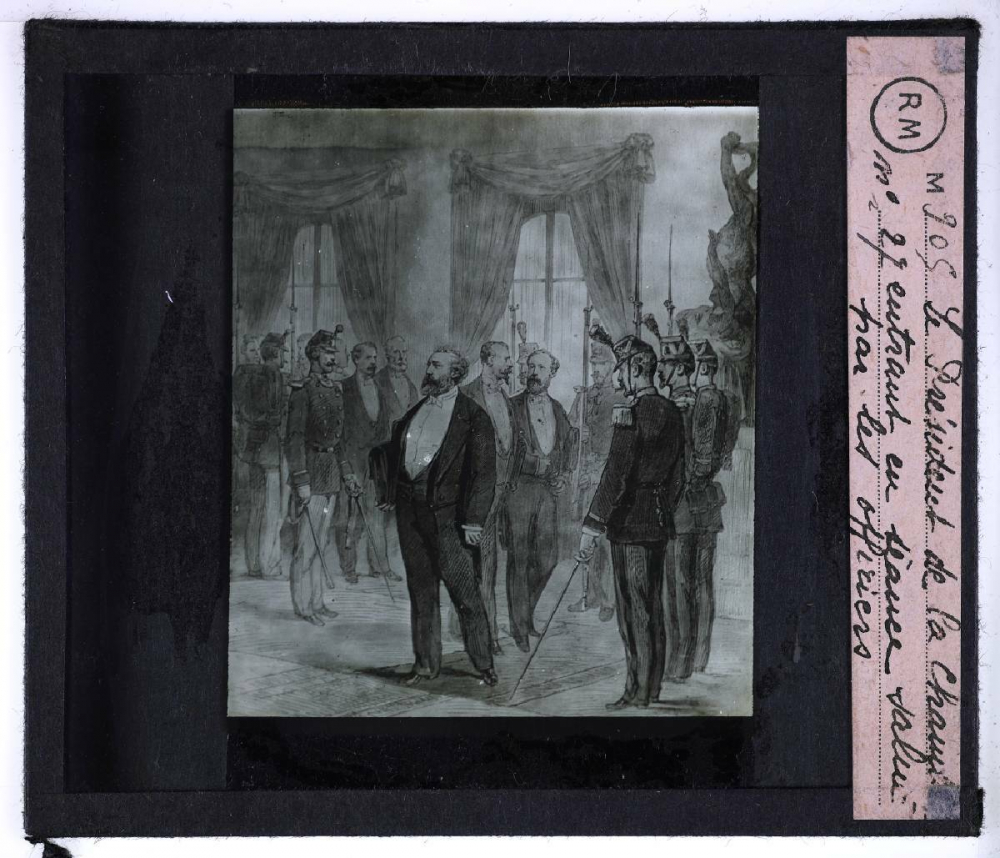 RM
M 205 Le Président de la Chambre
n° 27 entrant en séance salué
par les officiers